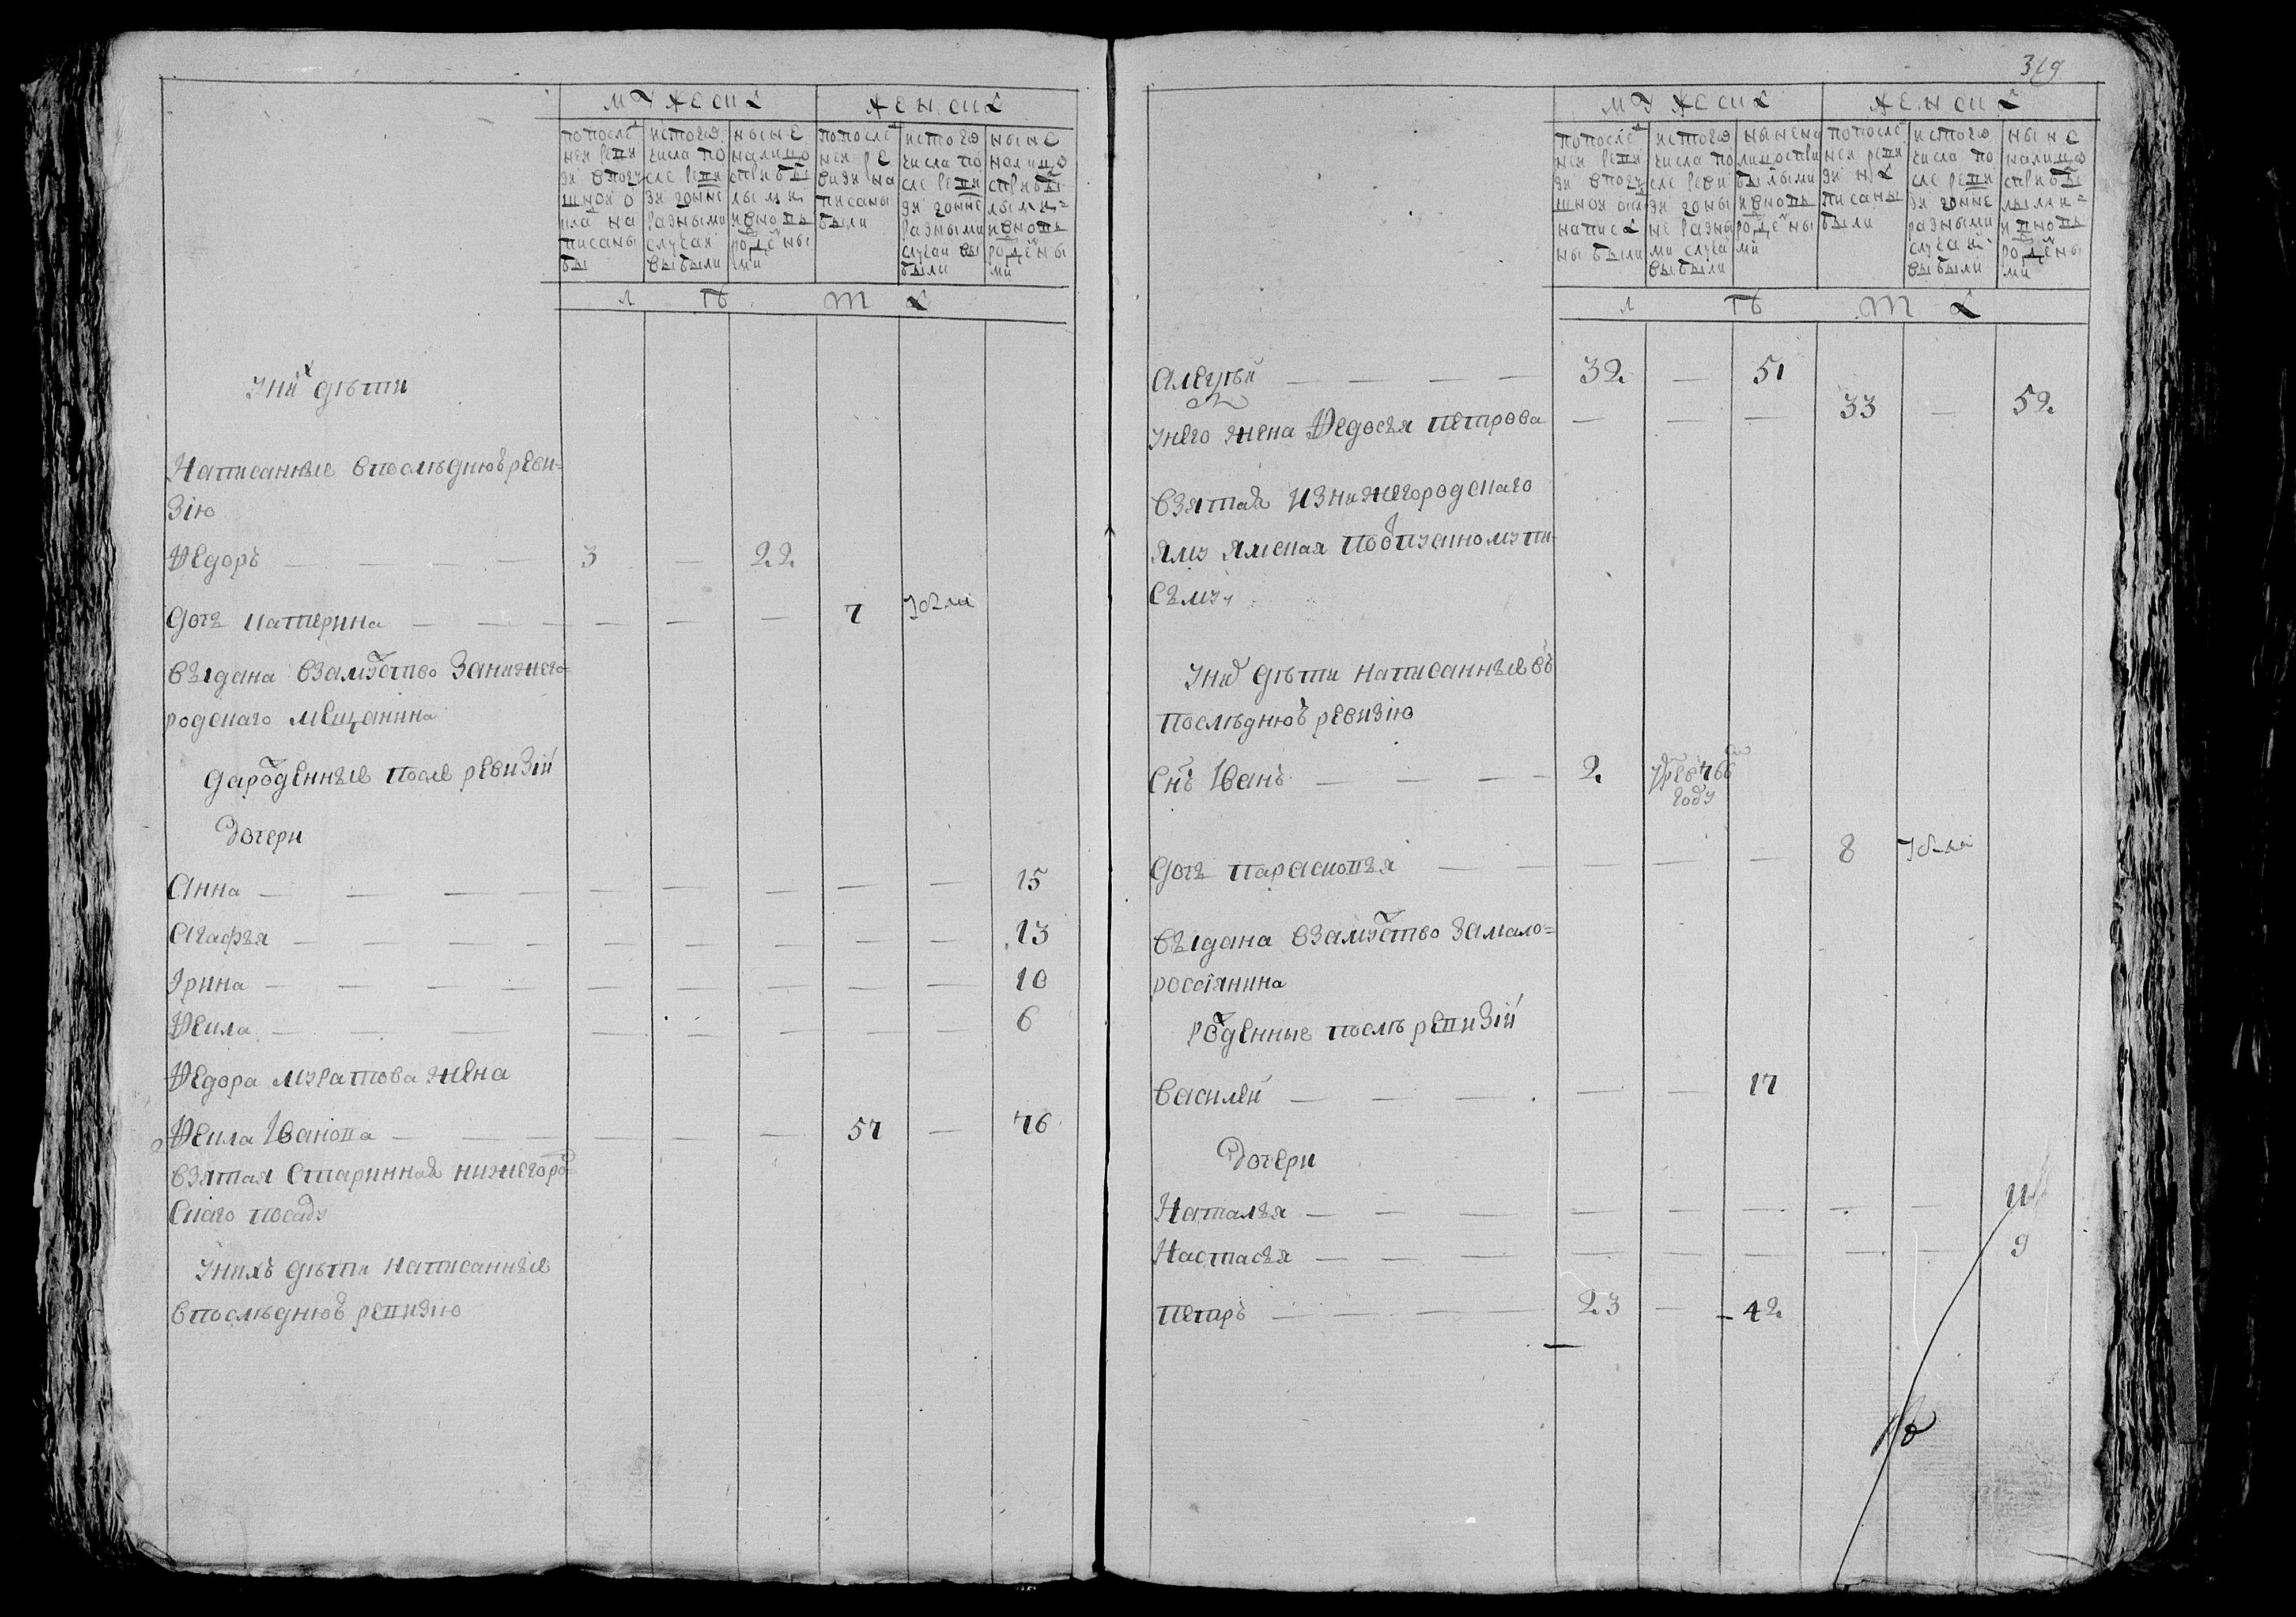 мужеска женска
попослѣ
ней реви
зи вподу
шной о
кла на
писаны
бы
истого
числа по
сле реви
зи 20мне
разными
случаи
выбыли
ныне
налицо
сприбы
лыми
ивновь
рожденны
ми
попосле
ней ре
визи на
писаны
были
истого
числа по
сле реви
зи 20мне
разными
случаи вы
были
ныне
налицо
сприбы
лыми
ивновь
рожденны
ми
л ѣ т а
Уних дѣти
Написанные впослѣднюю реви-
зію
Ѳедоръ — — — — 3 — 22
Дочь катерина — — — — — — 7
выдана взамуство занижего-
родскаго мещанина
Дарожденные после ревизіи
Дочери
Анна — — — — — — — — 15
Агафья — — — — — — — — 13
Ирина — — — — — — — — 10
Ѳекла — — — — — — — — 6
Ѳедора муратова жена
Ѳекла Иванова — — — — — — 57 — 76
взятая Старинная нижегород-
скаго посаду
Унихъ дѣти написанные
впослѣднюю ревизію
319
мужеска женска
попослѣ
ней реви
зи вподу
шной окл
написа
ны были
истого
числа по
сле реви
зи 20мы
не разны
ми случа
выбыли
нынена
лицоспри
былыми
ивновь
рожденны
ми
попосле
ней реви
зи на
писаны
были
истого
числа по
сле реви
зи 20мне
разными
случаи
выбыли
ныне
налицо
сприбы
лыми
ивновь
рожденны
ми
л ѣ т а
Алексѣй — — — — 32 — 51
Унего жена Ѳедосья петрова — — — 33 — 52
Взятая изнижегородскаго
Яму Ямская поотпускному пи-
сьму
Уних дѣти написанные въ
послѣднюю ревизію
Снъ Иванъ — — — — 2
году
Дочь парасковья — — — — — 8
выдана взамуство замало-
россіянина
Рожденные послѣ ревизіи
Василей — — — — — 17
Дочери
Наталья — — — — — — — — 11
Настасья — — — — — — — — 9
Петръ — — — — 23 — 42